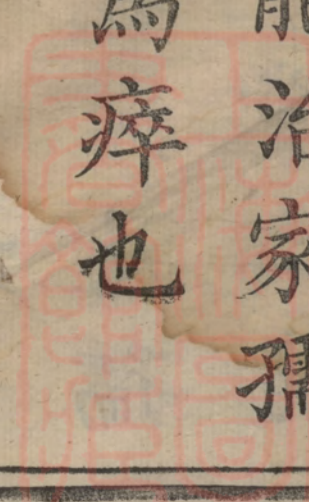 能治家孺
為瘁也